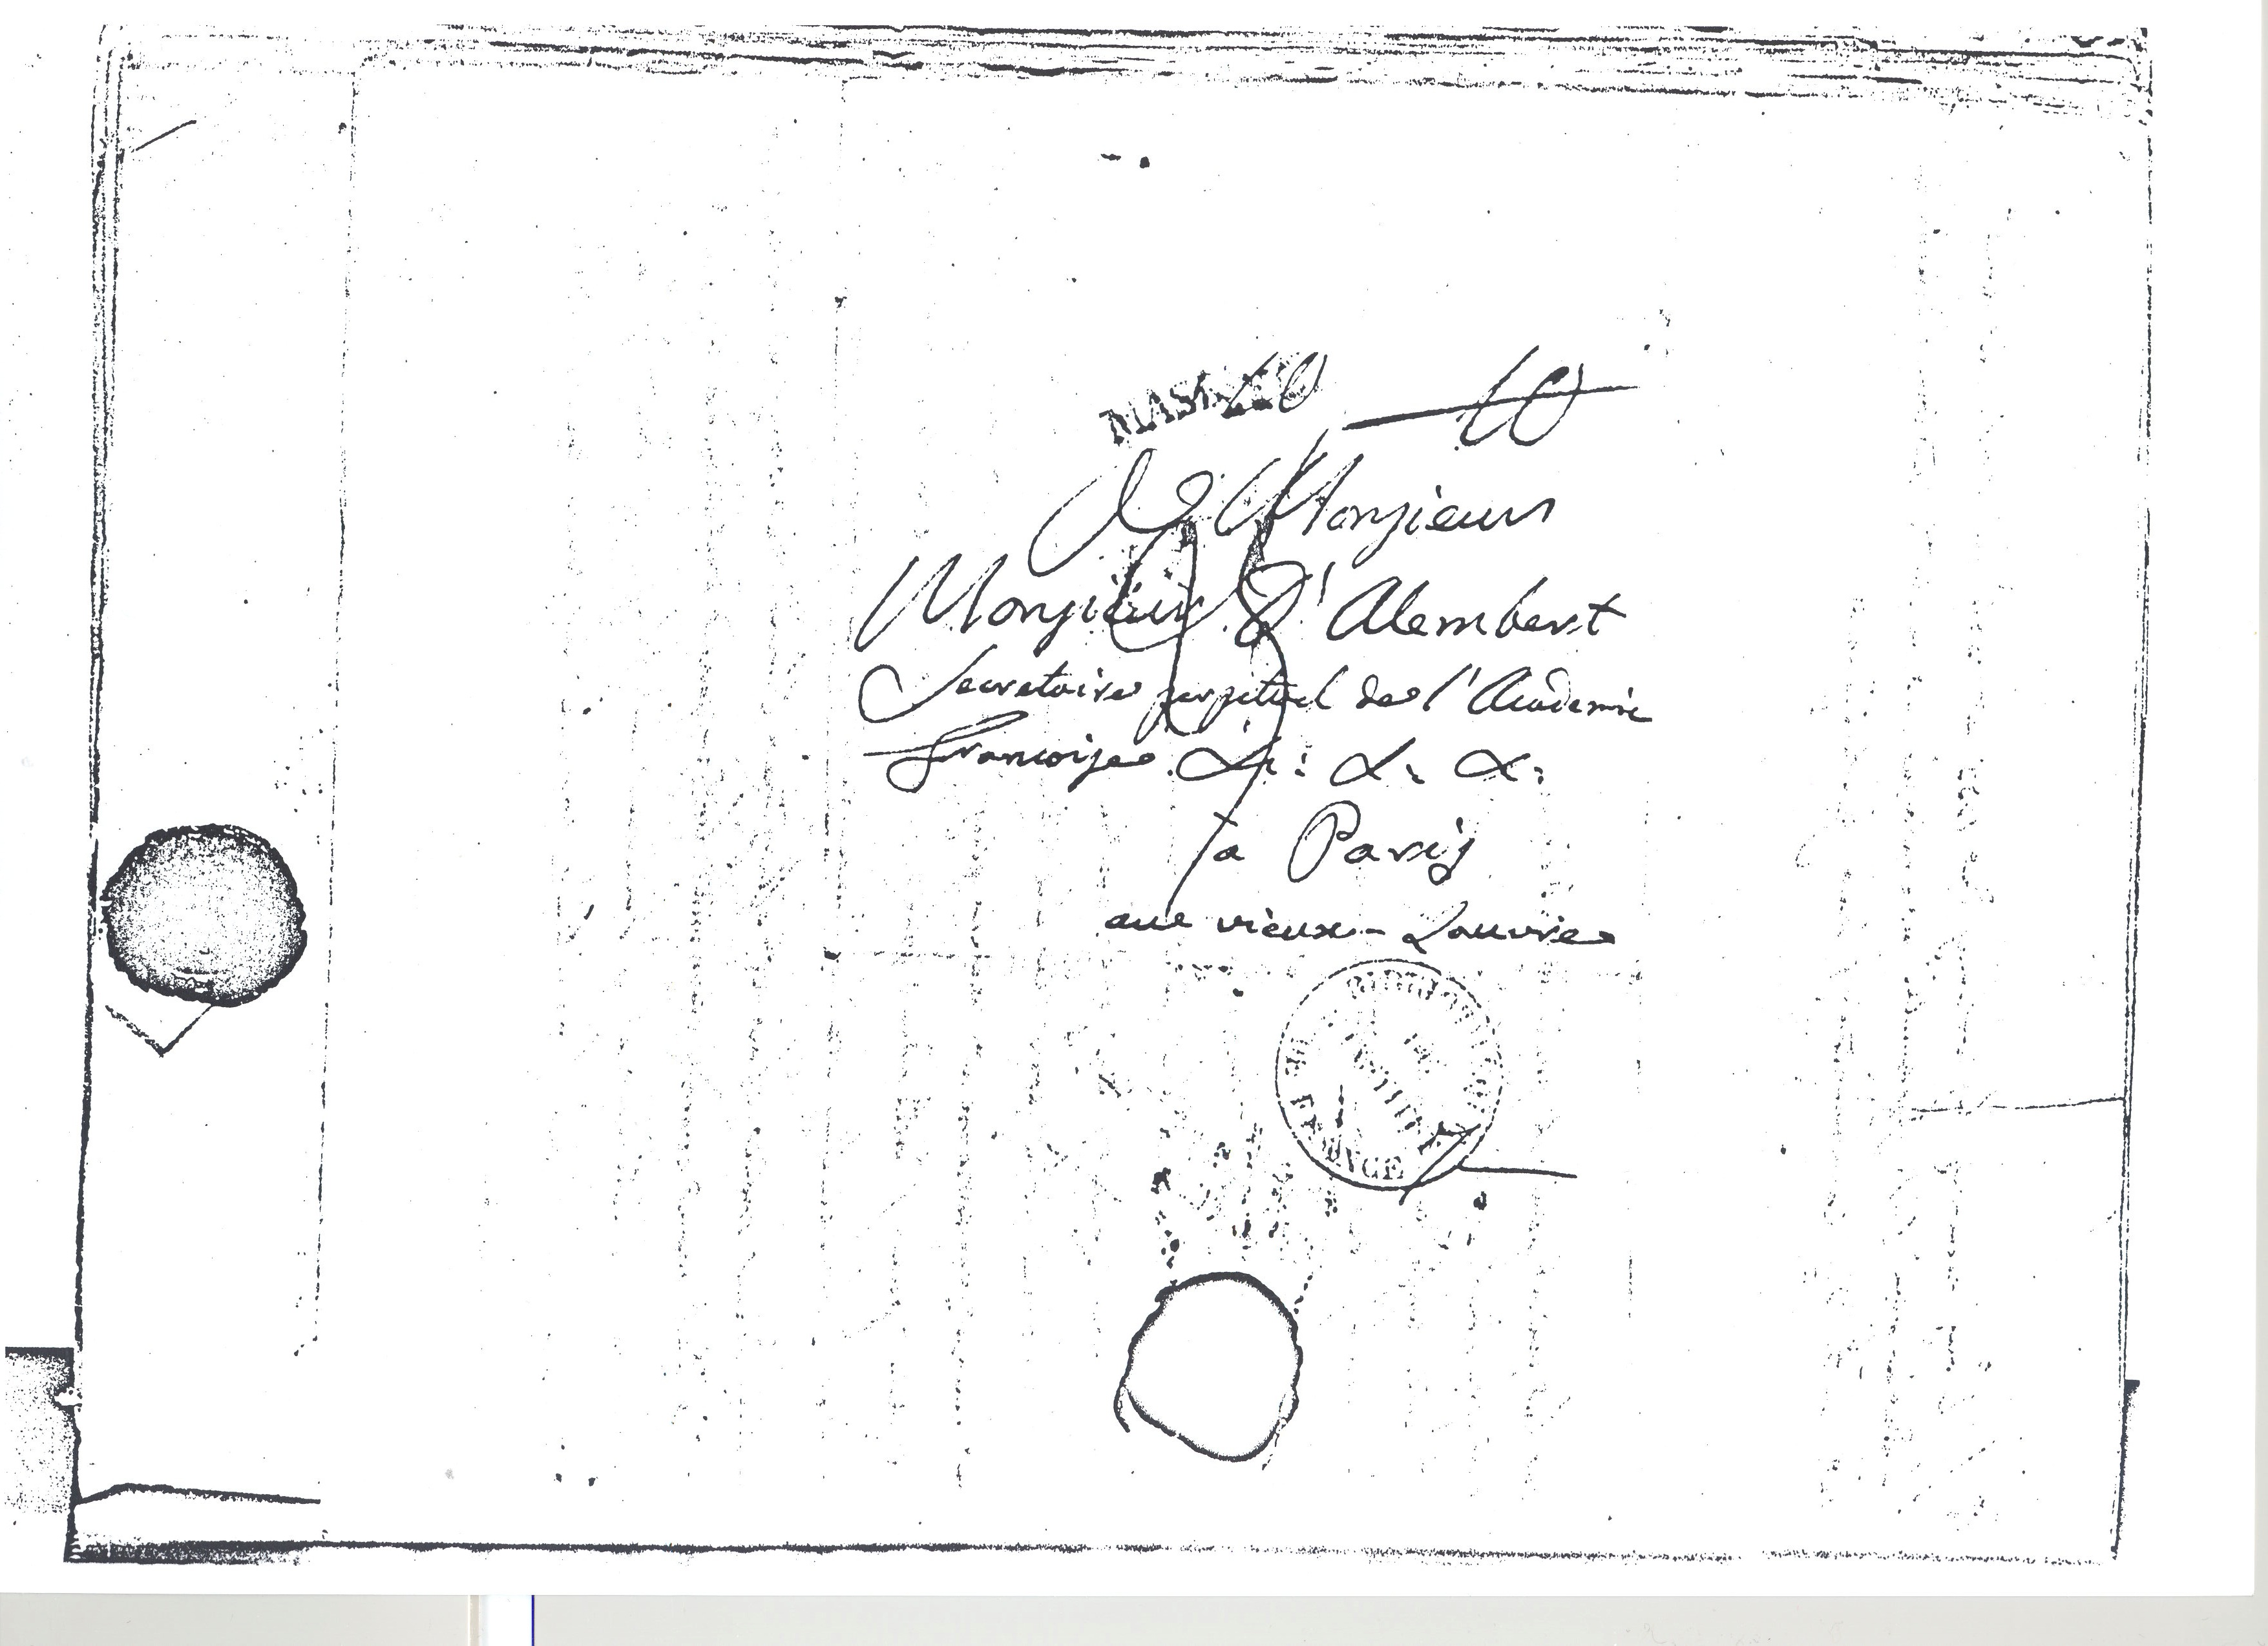 10
A Monsieur
Monsieur D'Alembert
Secretaire perpetuel de l'Academie
francoise &: &: &:
a Paris
aux vieux-Louvre
BIBLIOTHEQUE DE L'INSTITUT
DE FRANCE